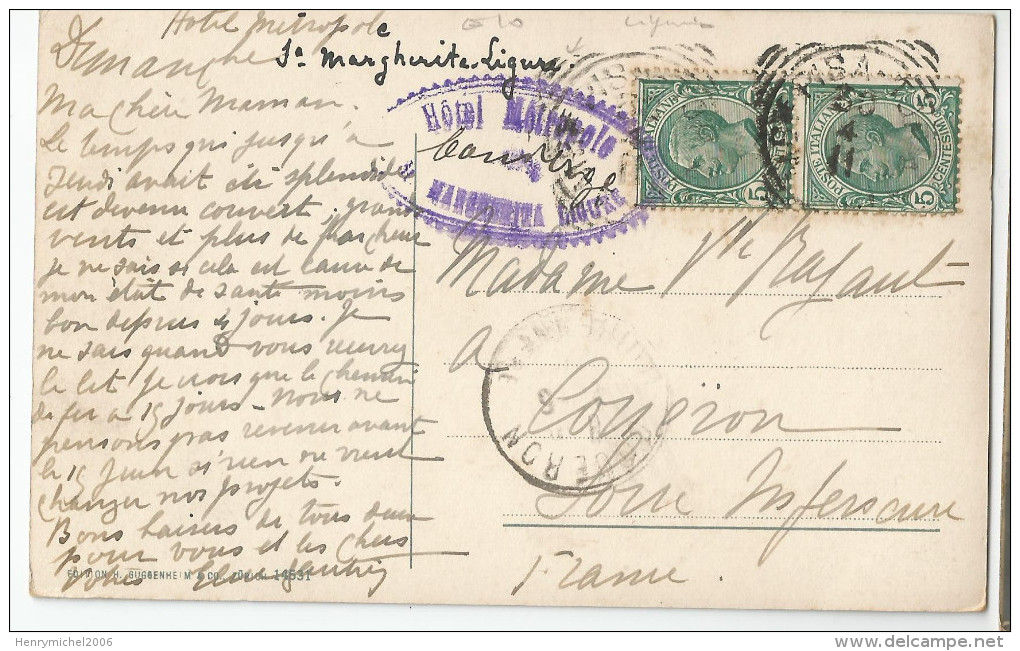 Hôtel Métropole
Sa Margherita-Ligure
Dimanche
Ma chère Maman.
Le temps qui jusqu'à
Jeudi avait été splendide
est devenu couvert, grands
vents et plus de fraicheur
je ne sais si cela est cause de
mon état de santé moins
bon depuis 4 jours. Je
ne sais quand vous
le lit je crois que le chemin
de fer a 15 jours - Nous ne
pensons pas revenir avant
le 15 Juin si rien ne vient
changer nos projets.
Bons baisers de tous deux
pour vous et les chers
vôtres
EDITION H. GUGGENHEIM & CO., ZÜRICH 14531
Hôtel Métropole
MARGHERITA LIGURE
POSTE ITALIANE
CENTESIMI 5
5
PISA
POSTE ITALIANE
5 CENTESIMI 5
Madame Vve
a
Couëron
Loire Inferieure
France.
COUERON
Henrymichel2006
delcampe.net